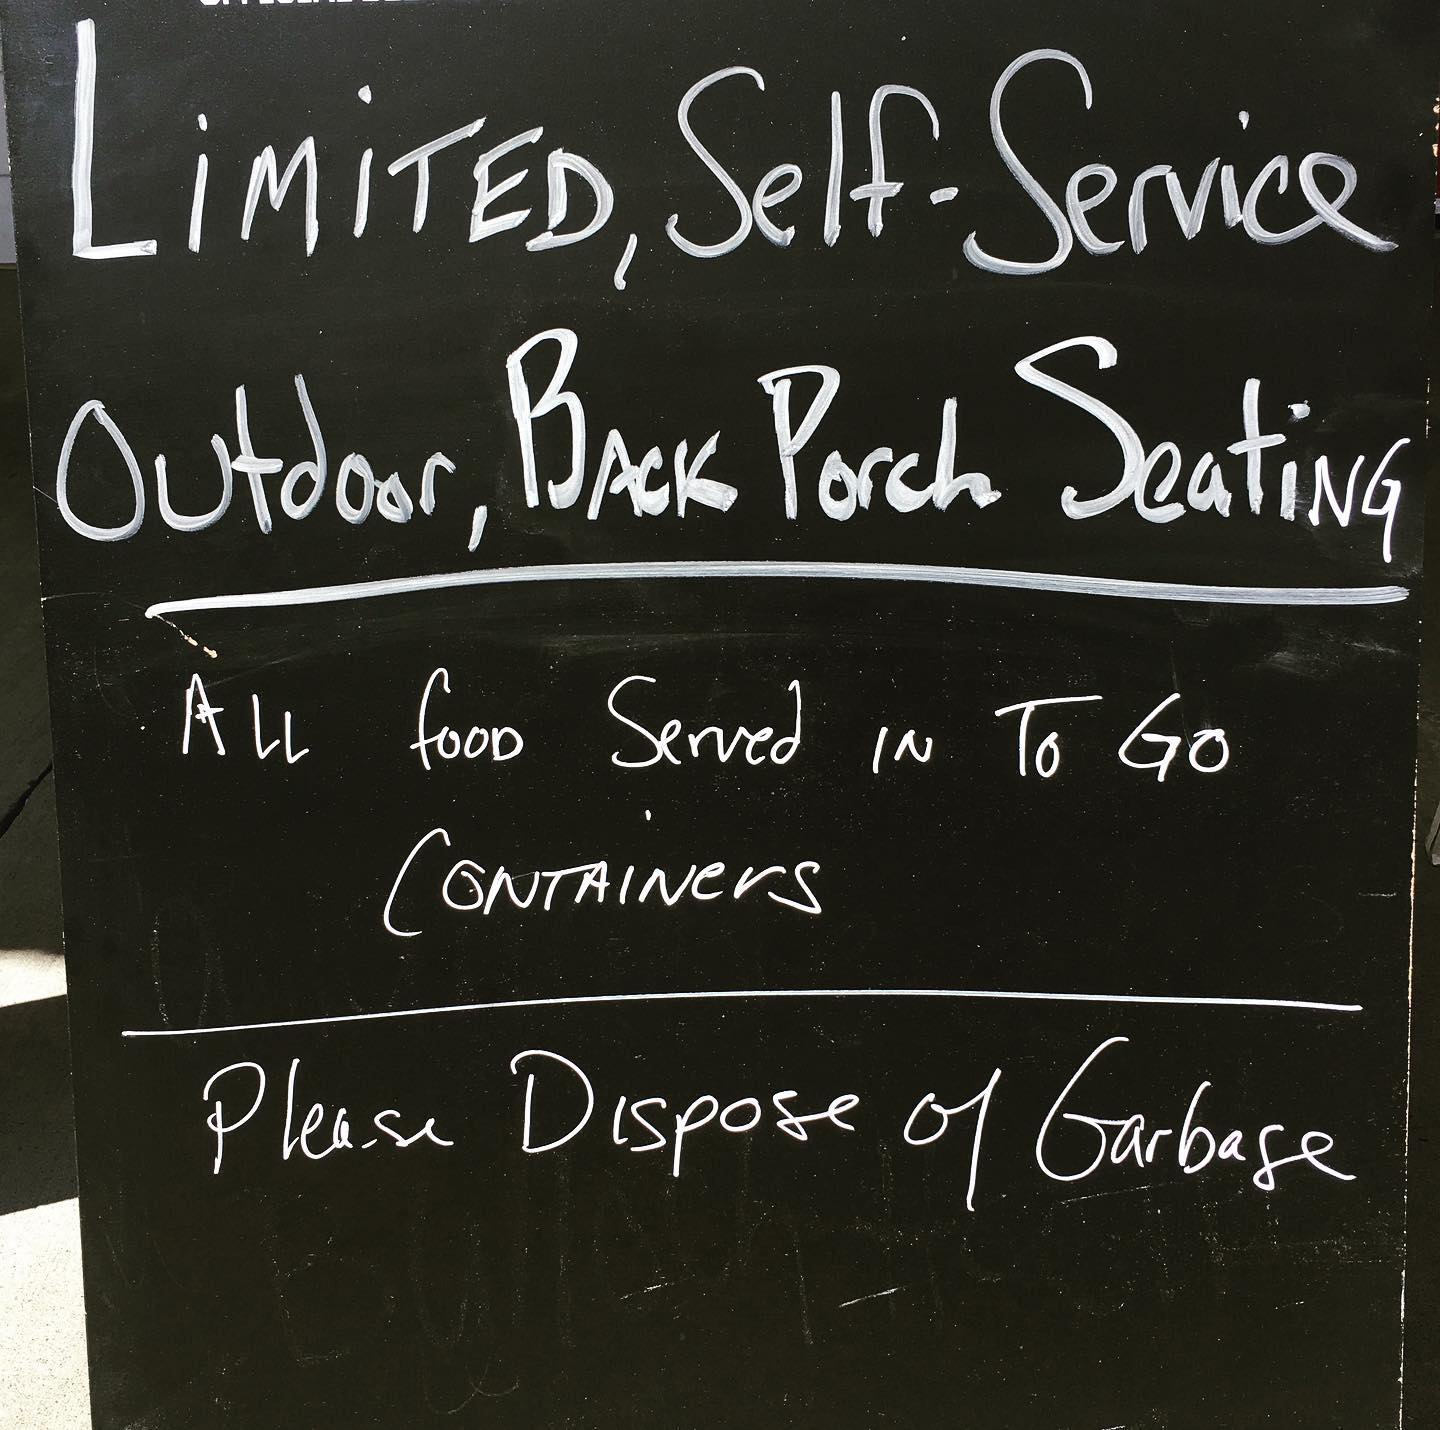 LiMiTED, Self-Service
Outdoor, BAcK Porch SeatiNG
ALL fooD Served iN To GO
CONTAiNerS
Please Dispose of Garbage